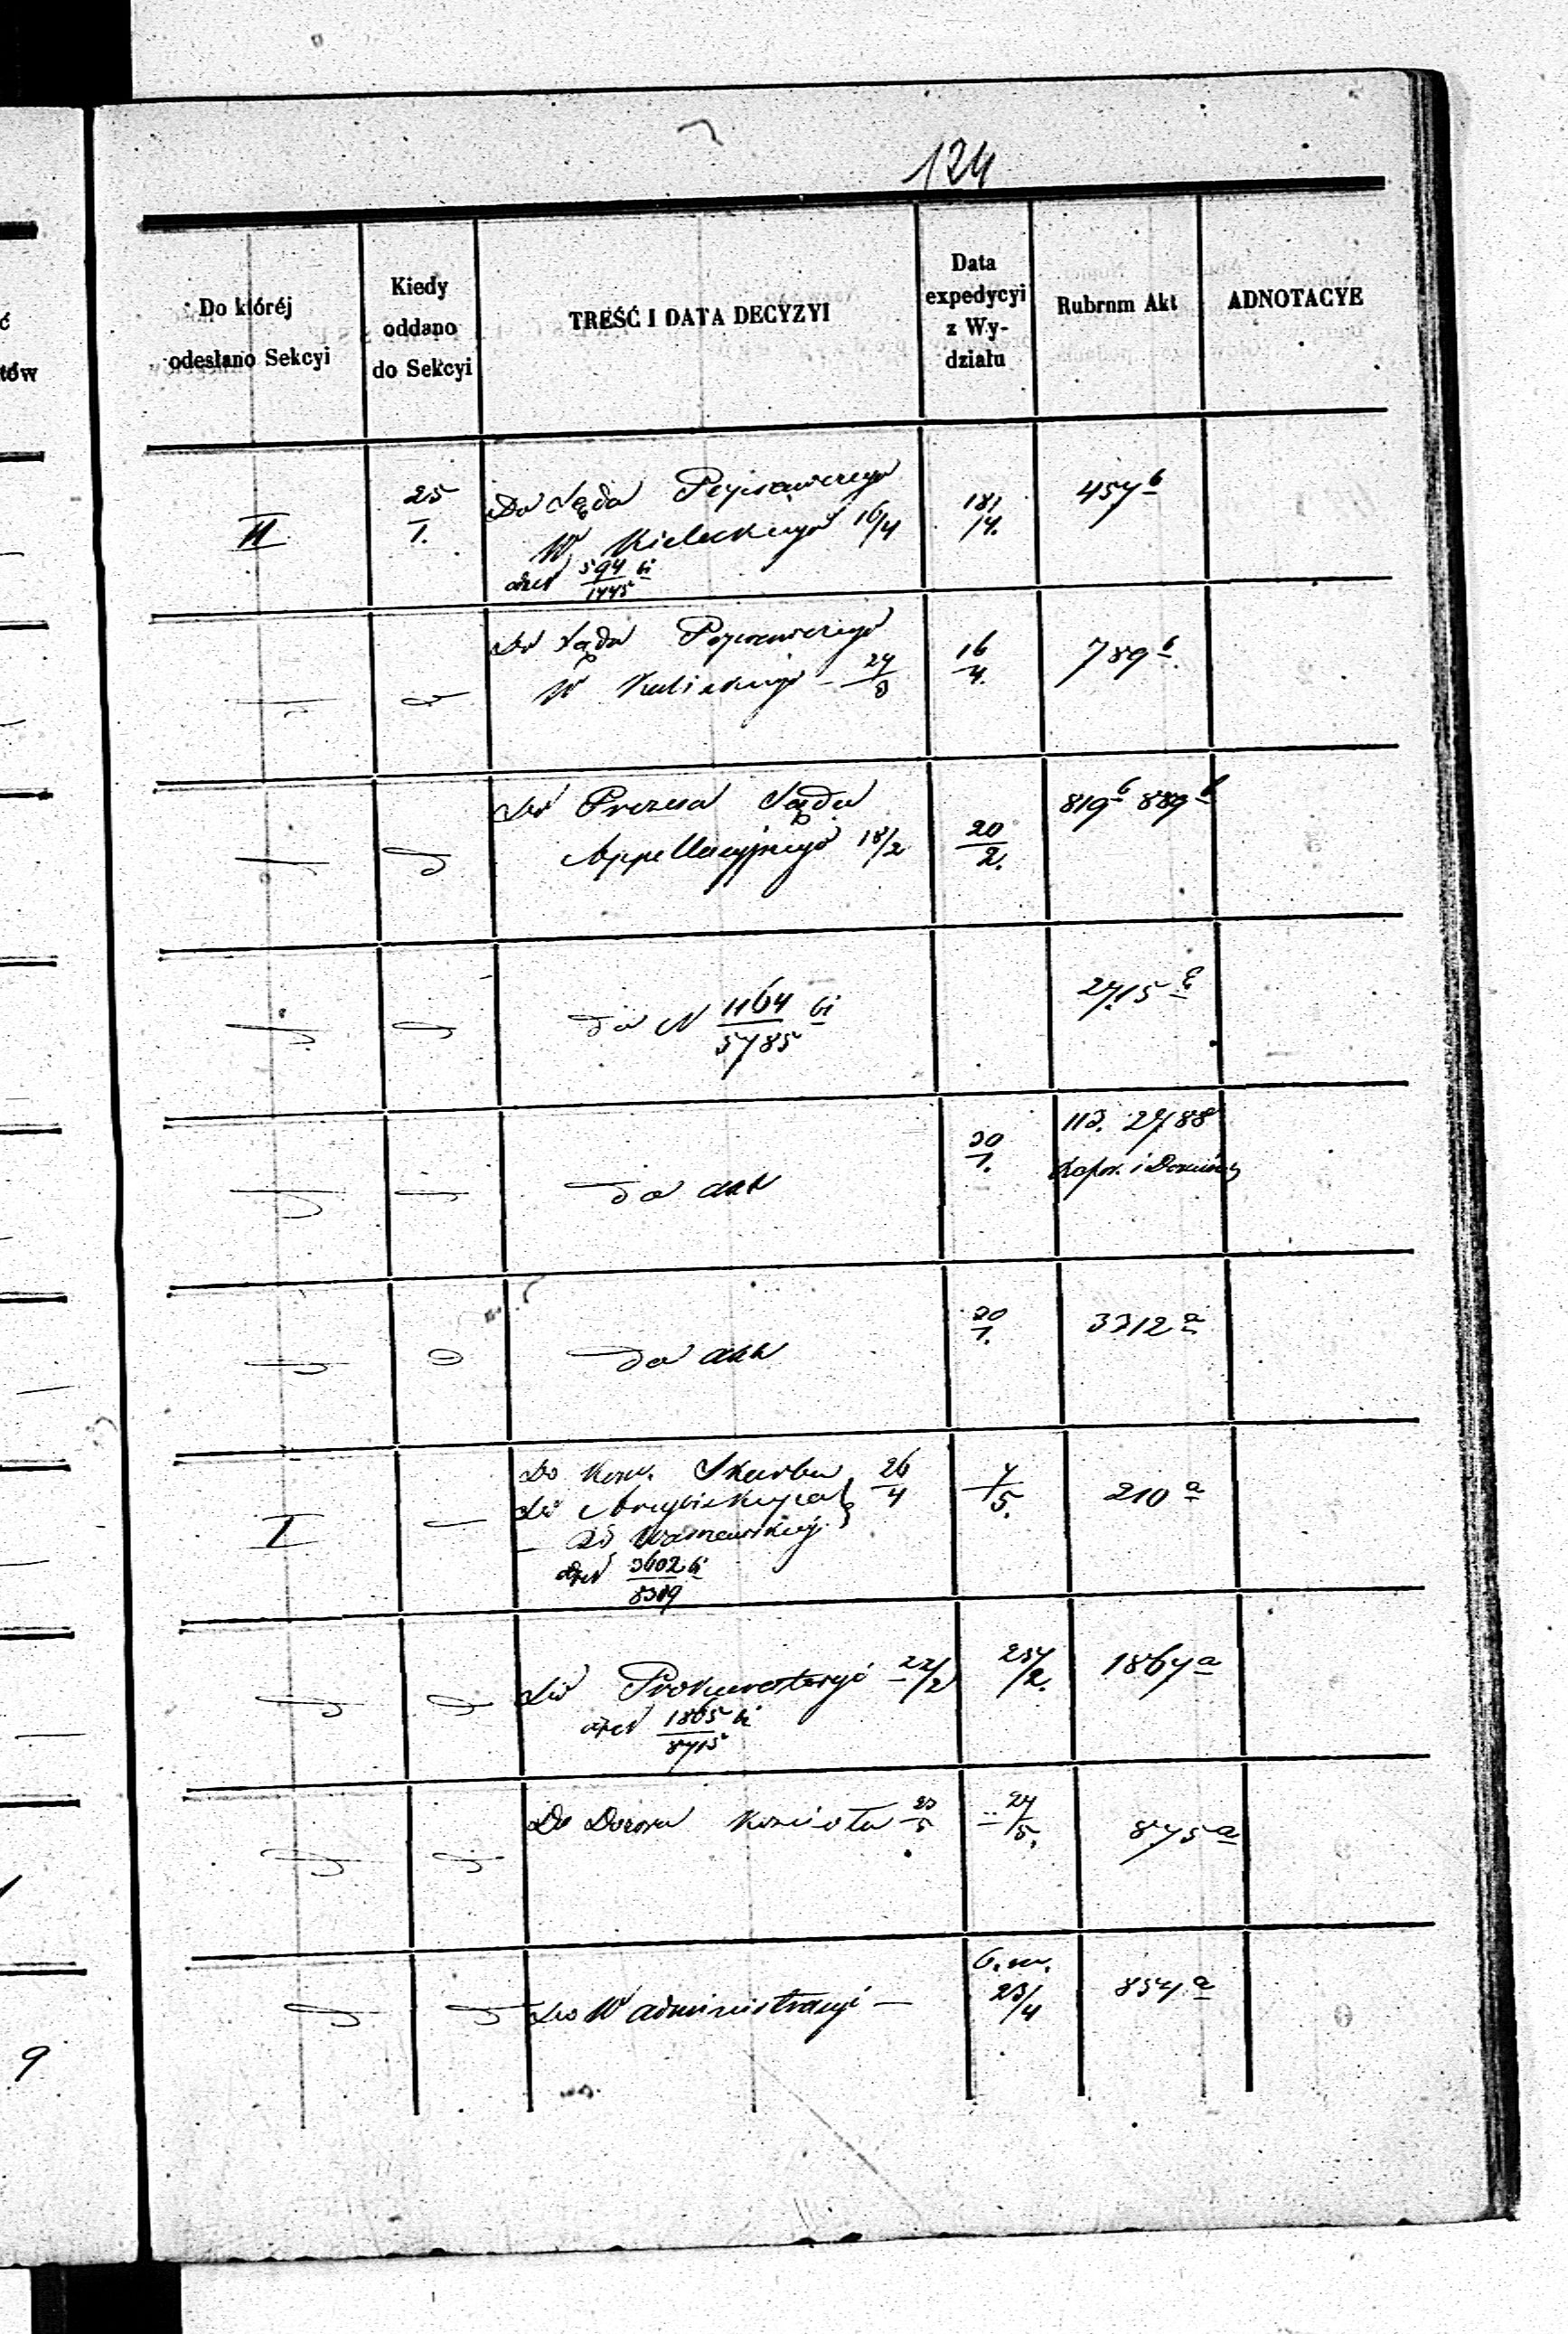 124
Do któréj
odesłano Sekcyi
Kiedy
oddano
do Sekcyi
TREŚĆ I DATA DECYZYI
Data
expedycyi
z Wy-
działu
Rubrnm Akt
ADNOTACYE
II
25
1.
Do Sądu Poprawczego
W Kieleckiego 16/4
594
1445
457 b
Do Sądu Poprawczego
W Kaliskiego 24/3
16
4.
789 b
Do Prezesa Sądu
Appellacyjnego 18/2
20
2.
819 b 889 b
do N 1164 bi
5785
2715
do akt
30
1.
113. 2788
do akt
30
1.
3312 a
I
Do Kom. Skarbu 26
4
Do Arcybiskupa
Warszawskiej
3602 bi
8389
7
5.
210 a
Do Prokuratoryi 22/2
1865 bi
8715
1867 a
Do Dozoru Kościoła 23
5
24
5.
875 a
Do W administracyi —
6. m.
23/4
854 a
9